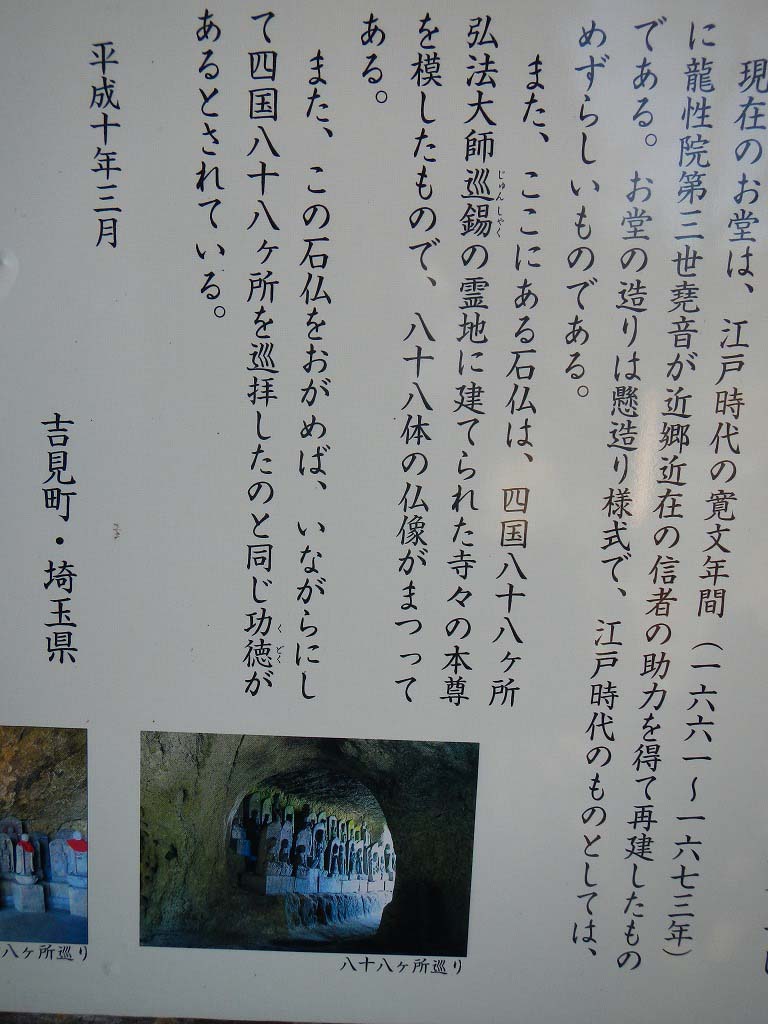 現在のお堂は、江戸時代の寛文年間（一六六一～一六七三年）
に龍性院第三世堯音が近郷近在の信者の助力を得て再建したもの
である。お堂の造りは懸造り様式で、江戸時代のものとしては、
めずらしいものである。
また、ここにある石仏は、四国八十八ヶ所
弘法大師巡錫の霊地に建てられた寺々の本尊
じゅんしゃく
を模したもので、八十八体の仏像がまつって
ある。
また、この石仏をおがめば、いながらにし
て四国八十八ヶ所を巡拝したのと同じ功徳が
くどく
あるとされている。
平成十年三月
吉見町・埼玉県
八十八ヶ所巡り
八ヶ所巡り